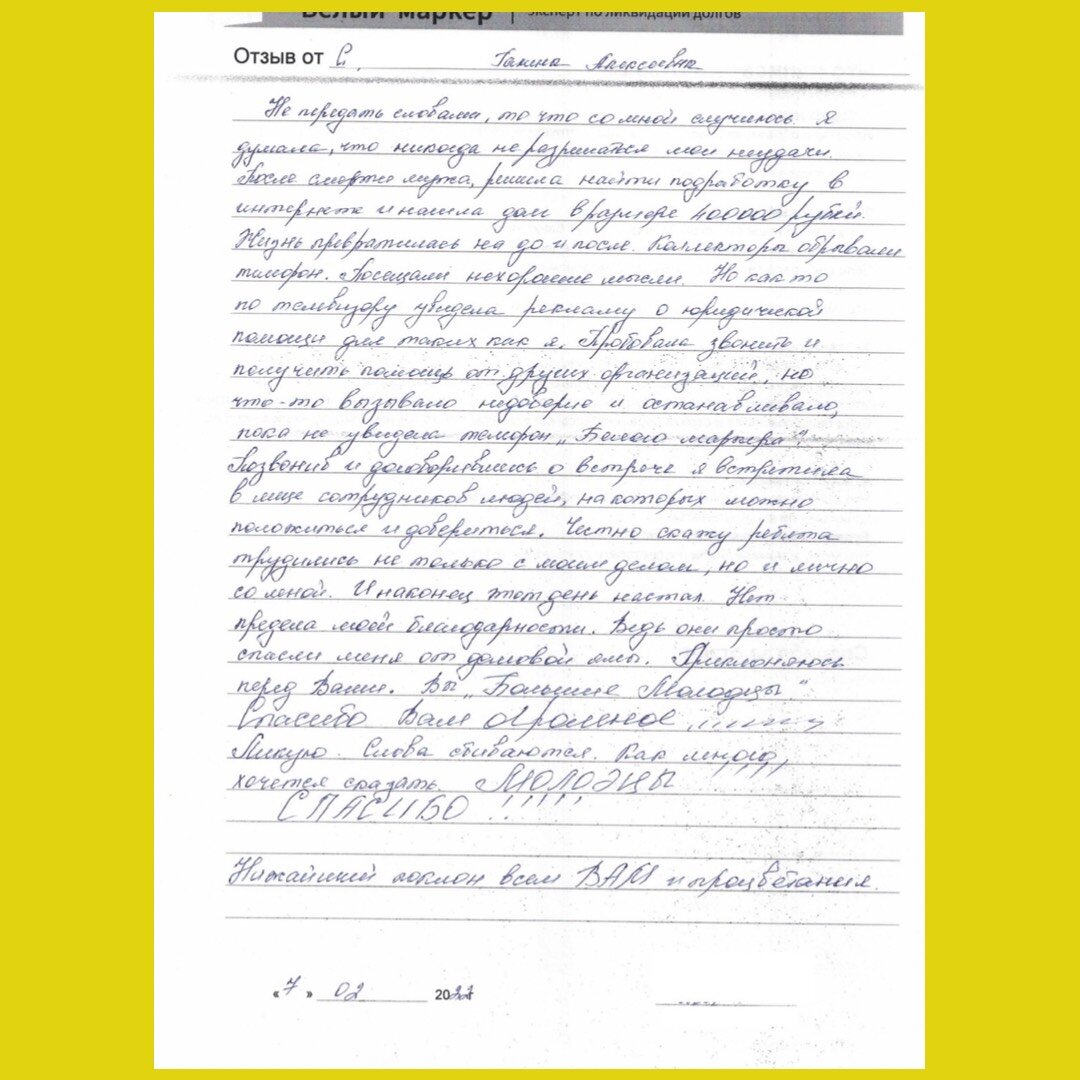 Белый маркер | эксперт по ликвидации долгов
Отзыв от С. Галина Алексеевна
Не передать словами, то что со мной случилось. Я
думала, что никогда не разрешатся мои неудачи.
После смерти мужа, решила найти подработку в
интернете и нашла долг в размере 400000 рублей.
Жизнь превратилась на до и после. Коллекторы обрывали
телефон. Посещали нехорошие мысли. Но как то
по телевизору увидела рекламу о юридической
помощи для таких как я. Пробовала звонить и
получить помощь от других организаций, но
что-то вызывало недоверие и останавливало,
пока не увидела телефон „Белого маркера".
Позвонив и договорившись о встрече я встретила
в лице сотрудников людей, на которых можно
положиться и довериться. Честно скажу ребята
трудились не только с моим делом, но и лично
со мной. И наконец этот день настал. Нет
предела моей благодарности. Ведь они просто
спасли меня от долговой ямы. Преклоняюсь
перед Вами. Вы „Большие Молодцы"
Спасибо Вам огромное !!!!!!
Ликую. Слова сбиваются. Как много
хочется сказать. МОЛОДЦЫ
СПАСИБО !!!!!
Нижайший поклон всем ВАМ и процветания.
«7» 02 2022